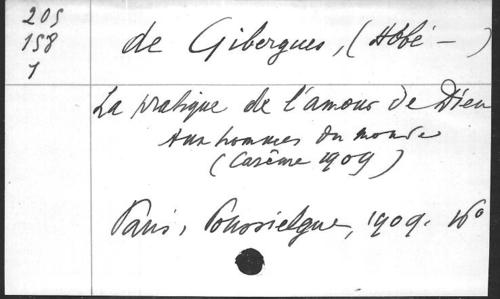 205
158
1
de Gibergues, (Abbé —)
La pratique de l'amour de Dieu
Aux hommes du monde
(Carême 1909)
Paris, Poussielgue, 1909. 16°